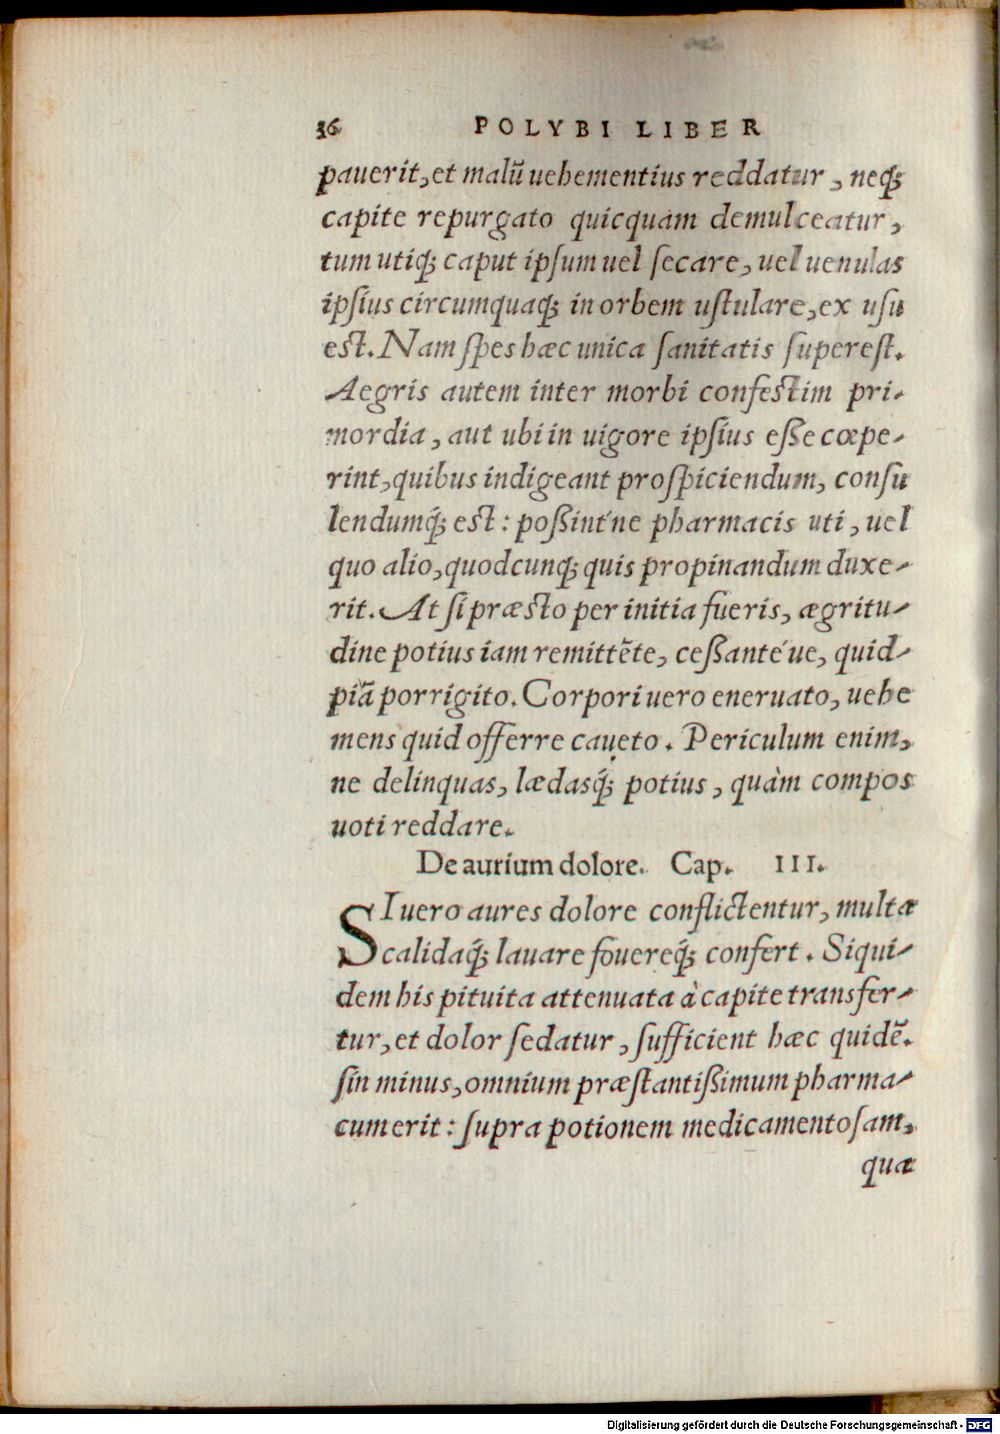 36 POLYBI LIBER
pauerit, et malũ uehementius reddatur, neq;
capite repurgato quicquam demulceatur,
tum utiq; caput ipsum uel secare, uel uenulas
ipsius circumquaq; in orbem ustulare, ex usu
est. Nam spes hæc unica sanitatis superest.
Aegris autem inter morbi confestim pri-
mordia, aut ubi in uigore ipsius esse cœpe-
rint, quibus indigeant prospiciendum, consu
lendumq́; est: possint'ne pharmacis uti, uel
quo alio, quodcunq; quis propinandum duxe-
rit. At si præsto per initia fueris, ægritu-
dine potius iam remittẽte, cessante´ue, quid-
piã porrigito. Corpori uero eneruato, uehe
mens quid offerre caueto. Periculum enim,
ne delinquas, lædasq́; potius, quàm compos
uoti reddare.
De aurium dolore. Cap. III.
SI uero aures dolore conflictentur, multa
calidaq́; lauare fouereq́; confert. Siqui-
dem his pituita attenuata à capite transfer-
tur, et dolor sedatur, sufficient hæc quidẽ.
sin minus, omnium præstantissimum pharma-
cum erit: supra potionem medicamentosam,
quæ
Digitalisierung gefördert durch die Deutsche Forschungsgemeinschaft - DFG